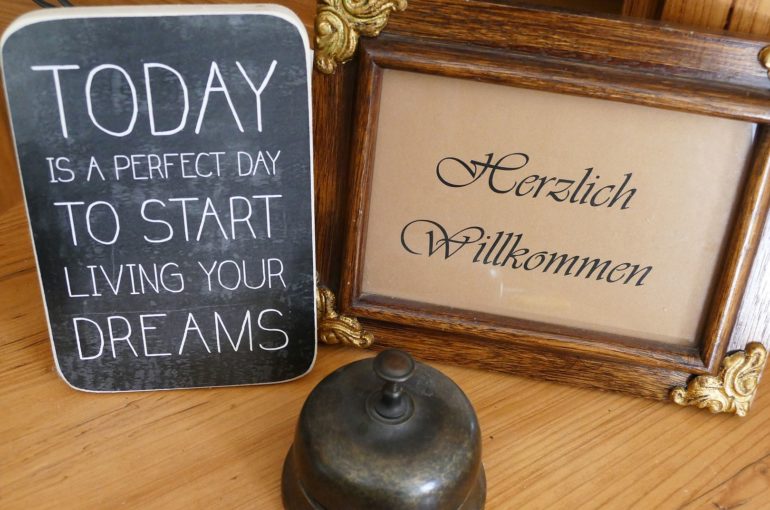 TODAY
IS A PERFECT DAY
TO START
LIVING YOUR
DREAMS
Herzlich
Willkommen